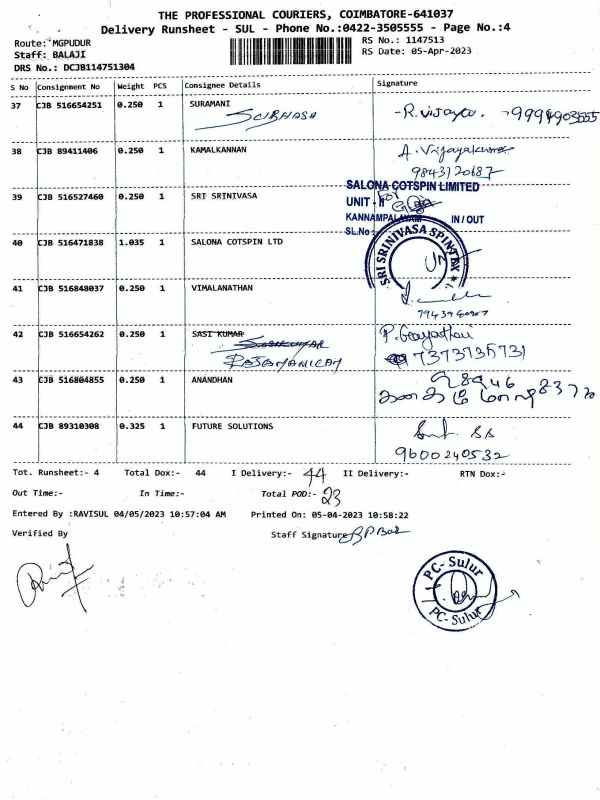 THE PROFESSIONAL COURIERS, COIMBATORE-641037
Delivery Runsheet - SUL - Phone No.:0422-3505555 - Page No.:4
Route: MGPUDUR
RS No.: 1147513
Staff: BALAJI
RS Date: 05-Apr-2023
DRS No.: DCJB114751304
S No Consignment No Weight PCS Consignee Details Signature
37 CJB 516654251 0.250 1 SURAMANI
38 CJB 89411406 0.250 1 KAMALKANNAN A. Vijayakumar
9843120687
SALONA COTSPIN LIMITED
39 CJB 516527460 0.250 1 SRI SRINIVASA UNIT - II
KANNAMPALAYAM IN / OUT
SL.No
40 CJB 516471838 1.035 1 SALONA COTSPIN LTD
SRI SRINIVASA SPINTEX
41 CJB 516848037 0.250 1 VIMALANATHAN
42 CJB 516654262 0.250 1 SASI KUMAR P. Gayathri
RAJAMANICAM 7373735731
43 CJB 516804855 0.250 1 ANANDHAN
44 CJB 89310308 0.325 1 FUTURE SOLUTIONS
9600240532
Tot. Runsheet:- 4 Total Dox:- 44 I Delivery:- 44 II Delivery:- RTN Dox:-
Out Time:- In Time:- Total POD:- 23
Entered By :RAVISUL 04/05/2023 10:57:04 AM Printed On: 05-04-2023 10:58:22
Verified By Staff Signature
PC- Sulur
PC- Sulur